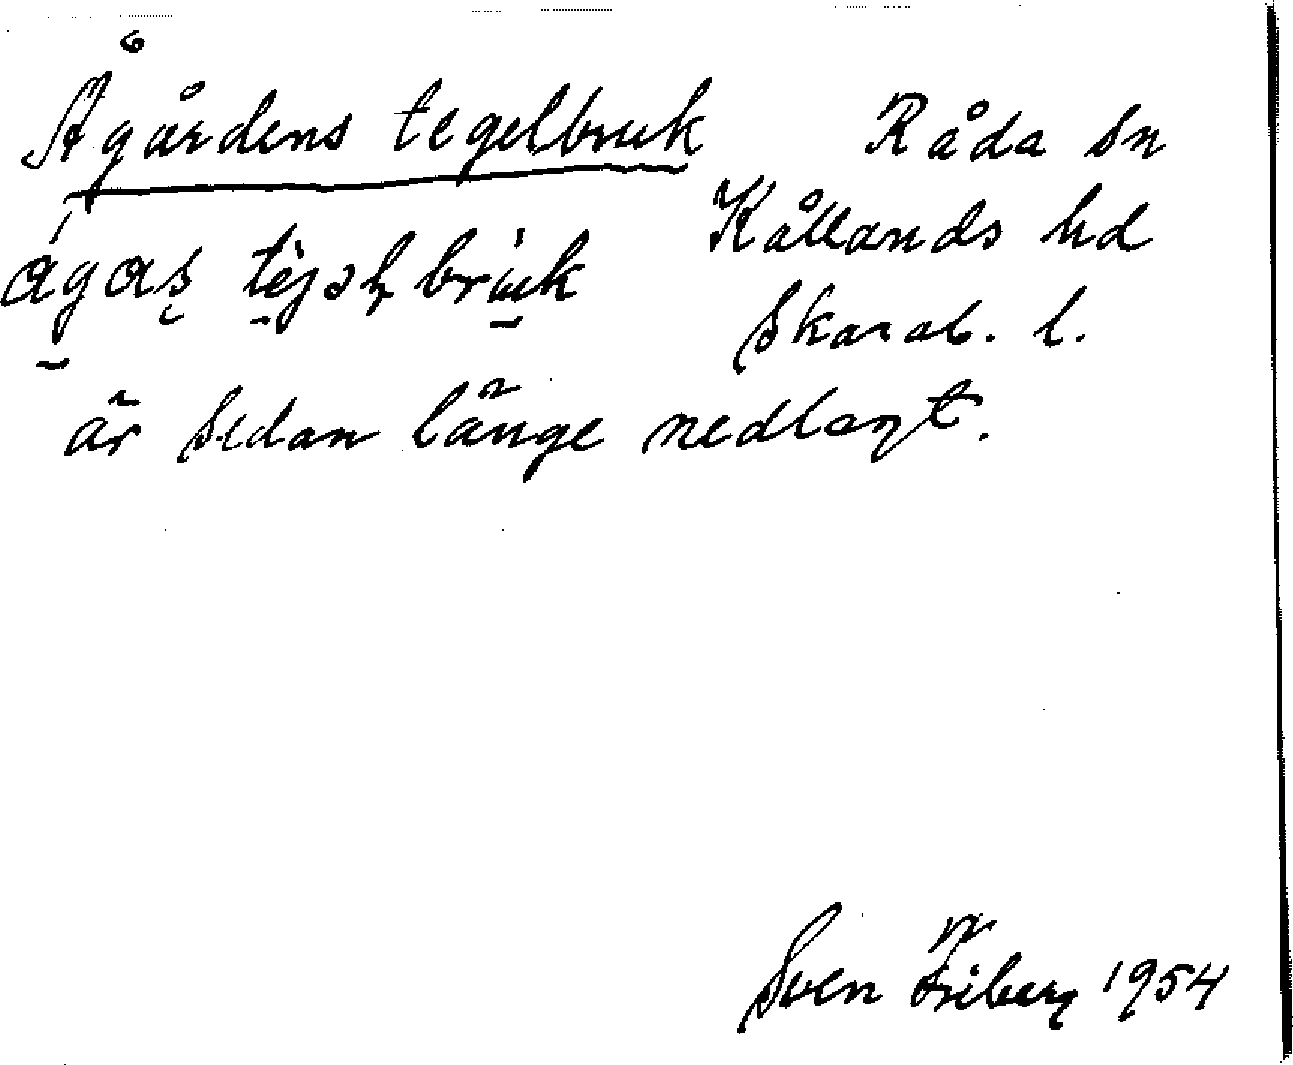 Ågårdens tegelbruk Råda sn
Kållands hd
Skarab. l.
är sedan länge nedlagt.
Sven Friberg 1954